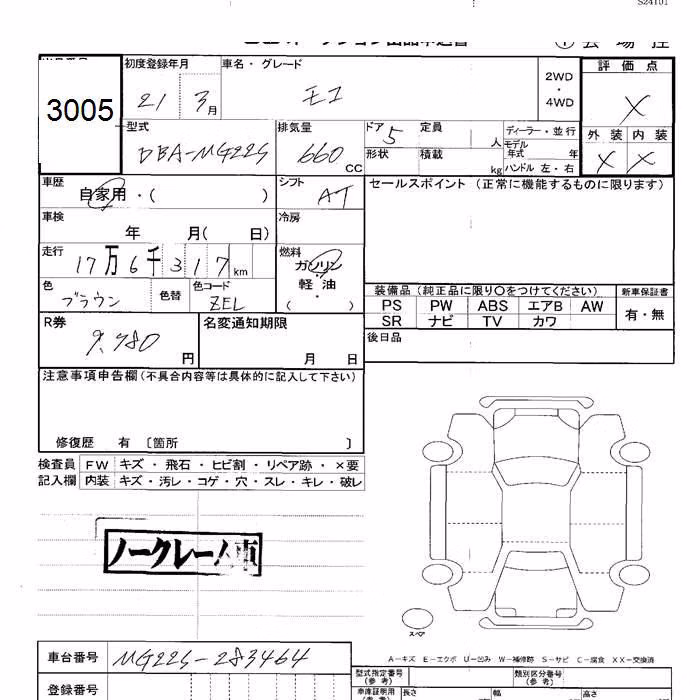 S24101
3005
初度登録年月 車名・グレード
21 3月 モコ
2WD・4WD
評価点
X
外装 内装
X X
型式 排気量 ドア 定員 ディーラー・並行
DBA-MG22S 660 CC 5 人 モデル年式 年
形状 積載 kg ハンドル 左・右
車歴 シフト セールスポイント (正常に機能するものに限ります)
自家用・( ) AT
車検 冷房
年 月( 日)
走行 燃料
17万6千317km ガソリン
軽油
・
( )
色 色替 色コード
ブラウン ZEL
装備品 (純正品に限り○をつけてください) 新車保証書
PS PW ABS エアB AW 有・無
SR ナビ TV カワ
R券 名変通知期限 後日品
9,980円 月 日
注意事項申告欄(不具合内容等は具体的に記入して下さい)
修復歴 有 〔箇所 〕
検査員 FW キズ・飛石・ヒビ割・リペア跡・×要
記入欄 内装 キズ・汚レ・コゲ・穴・スレ・キレ・破レ
ノークレーム車
スペア
車台番号 MG22S-283464
A-キズ E-エクボ U-凹み W-補修跡 S-サビ C-腐食 XX-交換済
型式指定番号(参考) 類別区分番号(参考)
登録番号
車庫証明用(参考) 長さ 幅 高さ